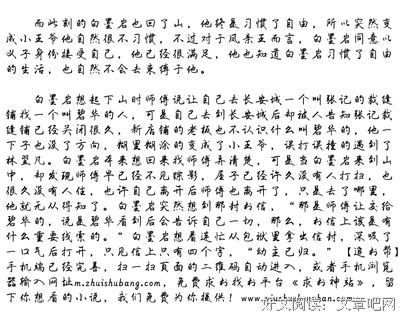 而此刻的白墨岩也回了山，他终是习惯了自由，所以突然变
成小王爷他自然很不习惯，不过对于风亲王而言，白墨岩同意以
义子身份接受自己，他已经很满足，他也知道白墨岩习惯了自由
的生活，也自然不会去束缚于他。
白墨岩想起下山时师傅说让自己去长安城一个叫张记的裁缝
铺找一个叫碧华的人，可是自己去到长安城后却被人告知张记裁
缝铺已经关闭很久，新店铺的老板也不认识什么叫碧华的，他一
下子也没了方向，糊里糊涂的变成了小王爷，误打误撞的遇到了
林望凡。白墨岩本来想回来找师傅弄清楚，可是当白墨岩来到山
中，却发现师傅早已经不见踪影，屋子已经许久没有人打扫，也
很久没有人住，也许自己离开后师傅也离开了，只是去了哪里，
他就无从得知了。白墨岩突然想到那封书信，“那是师傅让交给
碧华的，说是碧华看到后会告诉自己一切，那么，书信上该是有
什么重要线索的。”白墨岩想着连忙从包袱里拿出信封，深吸了
一口气后打开，只见信上只有四个字，“幼主已归。”【追书帮】
手机端已经完善，扫一扫页面的二维码自动进入，或者手机浏览
器输入网址m.zhuishubang.com，免费求书找书平台《求书神站》，留
下你想看的小说，我们免费为你提供！www.qiushushenzhan.com
好文阅读：文章吧网